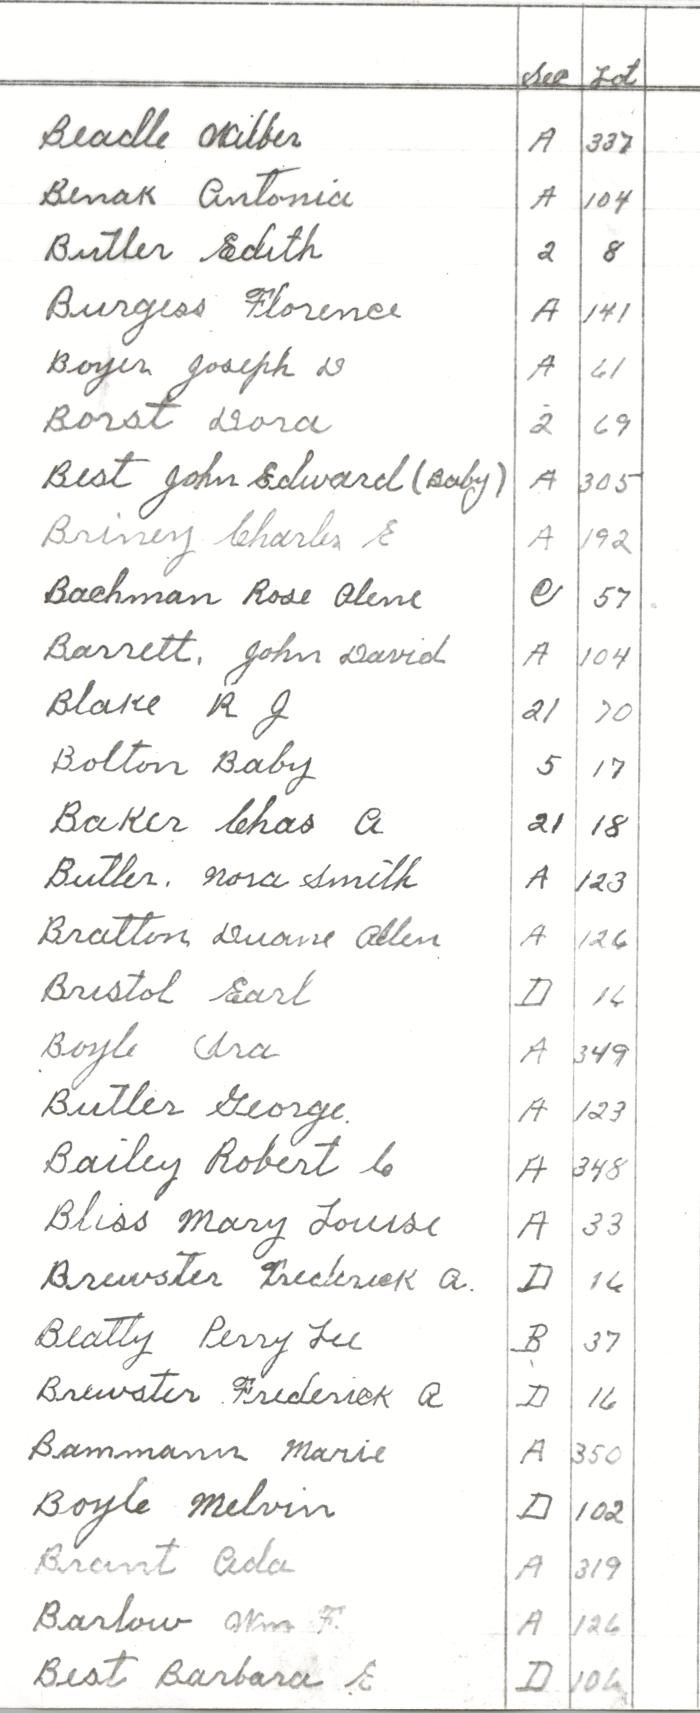 Sec Lot
Beadle Wilber A 337
Benak Antonia A 104
Butler Edith 2 8
Burgess Florence A 141
Boyer Joseph D A 61
Borst Dora 2 69
Best John Edward (Baby) A 305
Briney Charles E A 192
Bachman Rose Olene C 57
Barrett, John David A 104
Blake R J 21 70
Bolton Baby 5 17
Baker Chas A 21 18
Butler, Nora Smith A 123
Bratton Duane Allen A 126
Bristol Earl D 16
Boyle Ira A 349
Butler George A 123
Bailey Robert C A 348
Bliss Mary Louise A 33
Brewster Frederick A. D 16
Beatty Perry Lee B 37
Brewster Frederick A D 16
Bammann Marie A 350
Boyle Melvin D 102
Brant Ada A 319
Barlow Wm F. A 126
Best Barbara E D 106